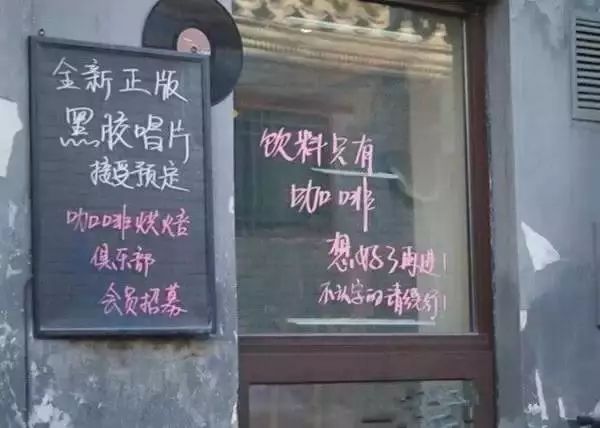 全新正版
黑胶唱片
接受预定
咖啡烘焙
俱乐部
会员招募
饮料只有
咖啡
想好了再进!
不认字的请绕行!